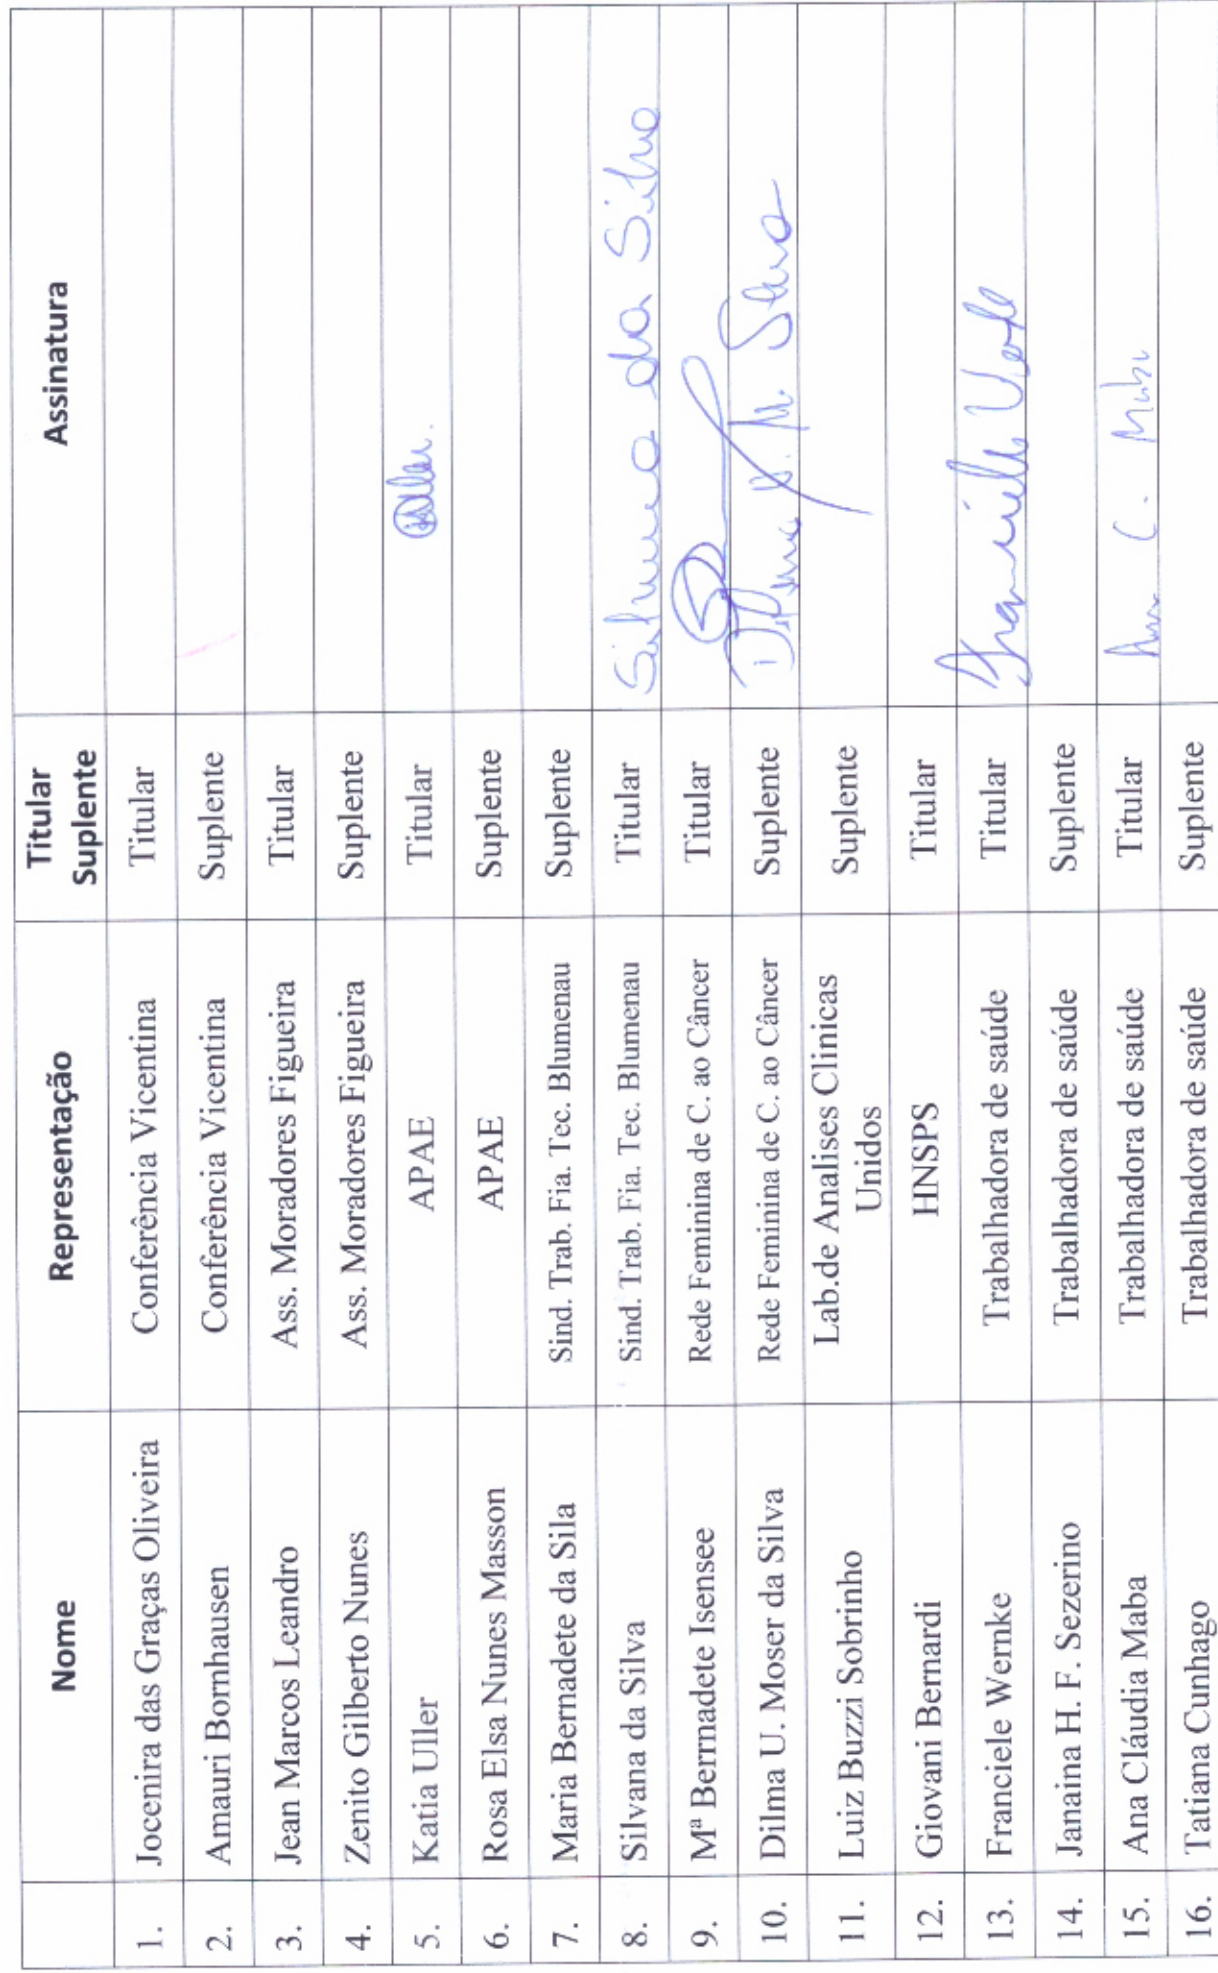 Nome Representação Titular Suplente Assinatura
1. Jocenira das Graças Oliveira Conferência Vicentina Titular
2. Amauri Bornhausen Conferência Vicentina Suplente
3. Jean Marcos Leandro Ass. Moradores Figueira Titular
4. Zenito Gilberto Nunes Ass. Moradores Figueira Suplente
5. Katia Uller APAE Titular
6. Rosa Elsa Nunes Masson APAE Suplente
7. Maria Bernadete da Sila Sind. Trab. Fia. Tec. Blumenau Suplente
8. Silvana da Silva Sind. Trab. Fia. Tec. Blumenau Titular Silvana da Silva
9. Mª Bernadete Isensee Rede Feminina de C. ao Câncer Titular
10. Dilma U. Moser da Silva Rede Feminina de C. ao Câncer Suplente Dilma U. M. Silva
11. Luiz Buzzi Sobrinho Lab.de Analises Clinicas Unidos Suplente
12. Giovani Bernardi HNSPS Titular
13. Franciele Wernke Trabalhadora de saúde Titular
14. Janaina H. F. Sezerino Trabalhadora de saúde Suplente
15. Ana Cláudia Maba Trabalhadora de saúde Titular Ana C. Maba
16. Tatiana Cunhago Trabalhadora de saúde Suplente